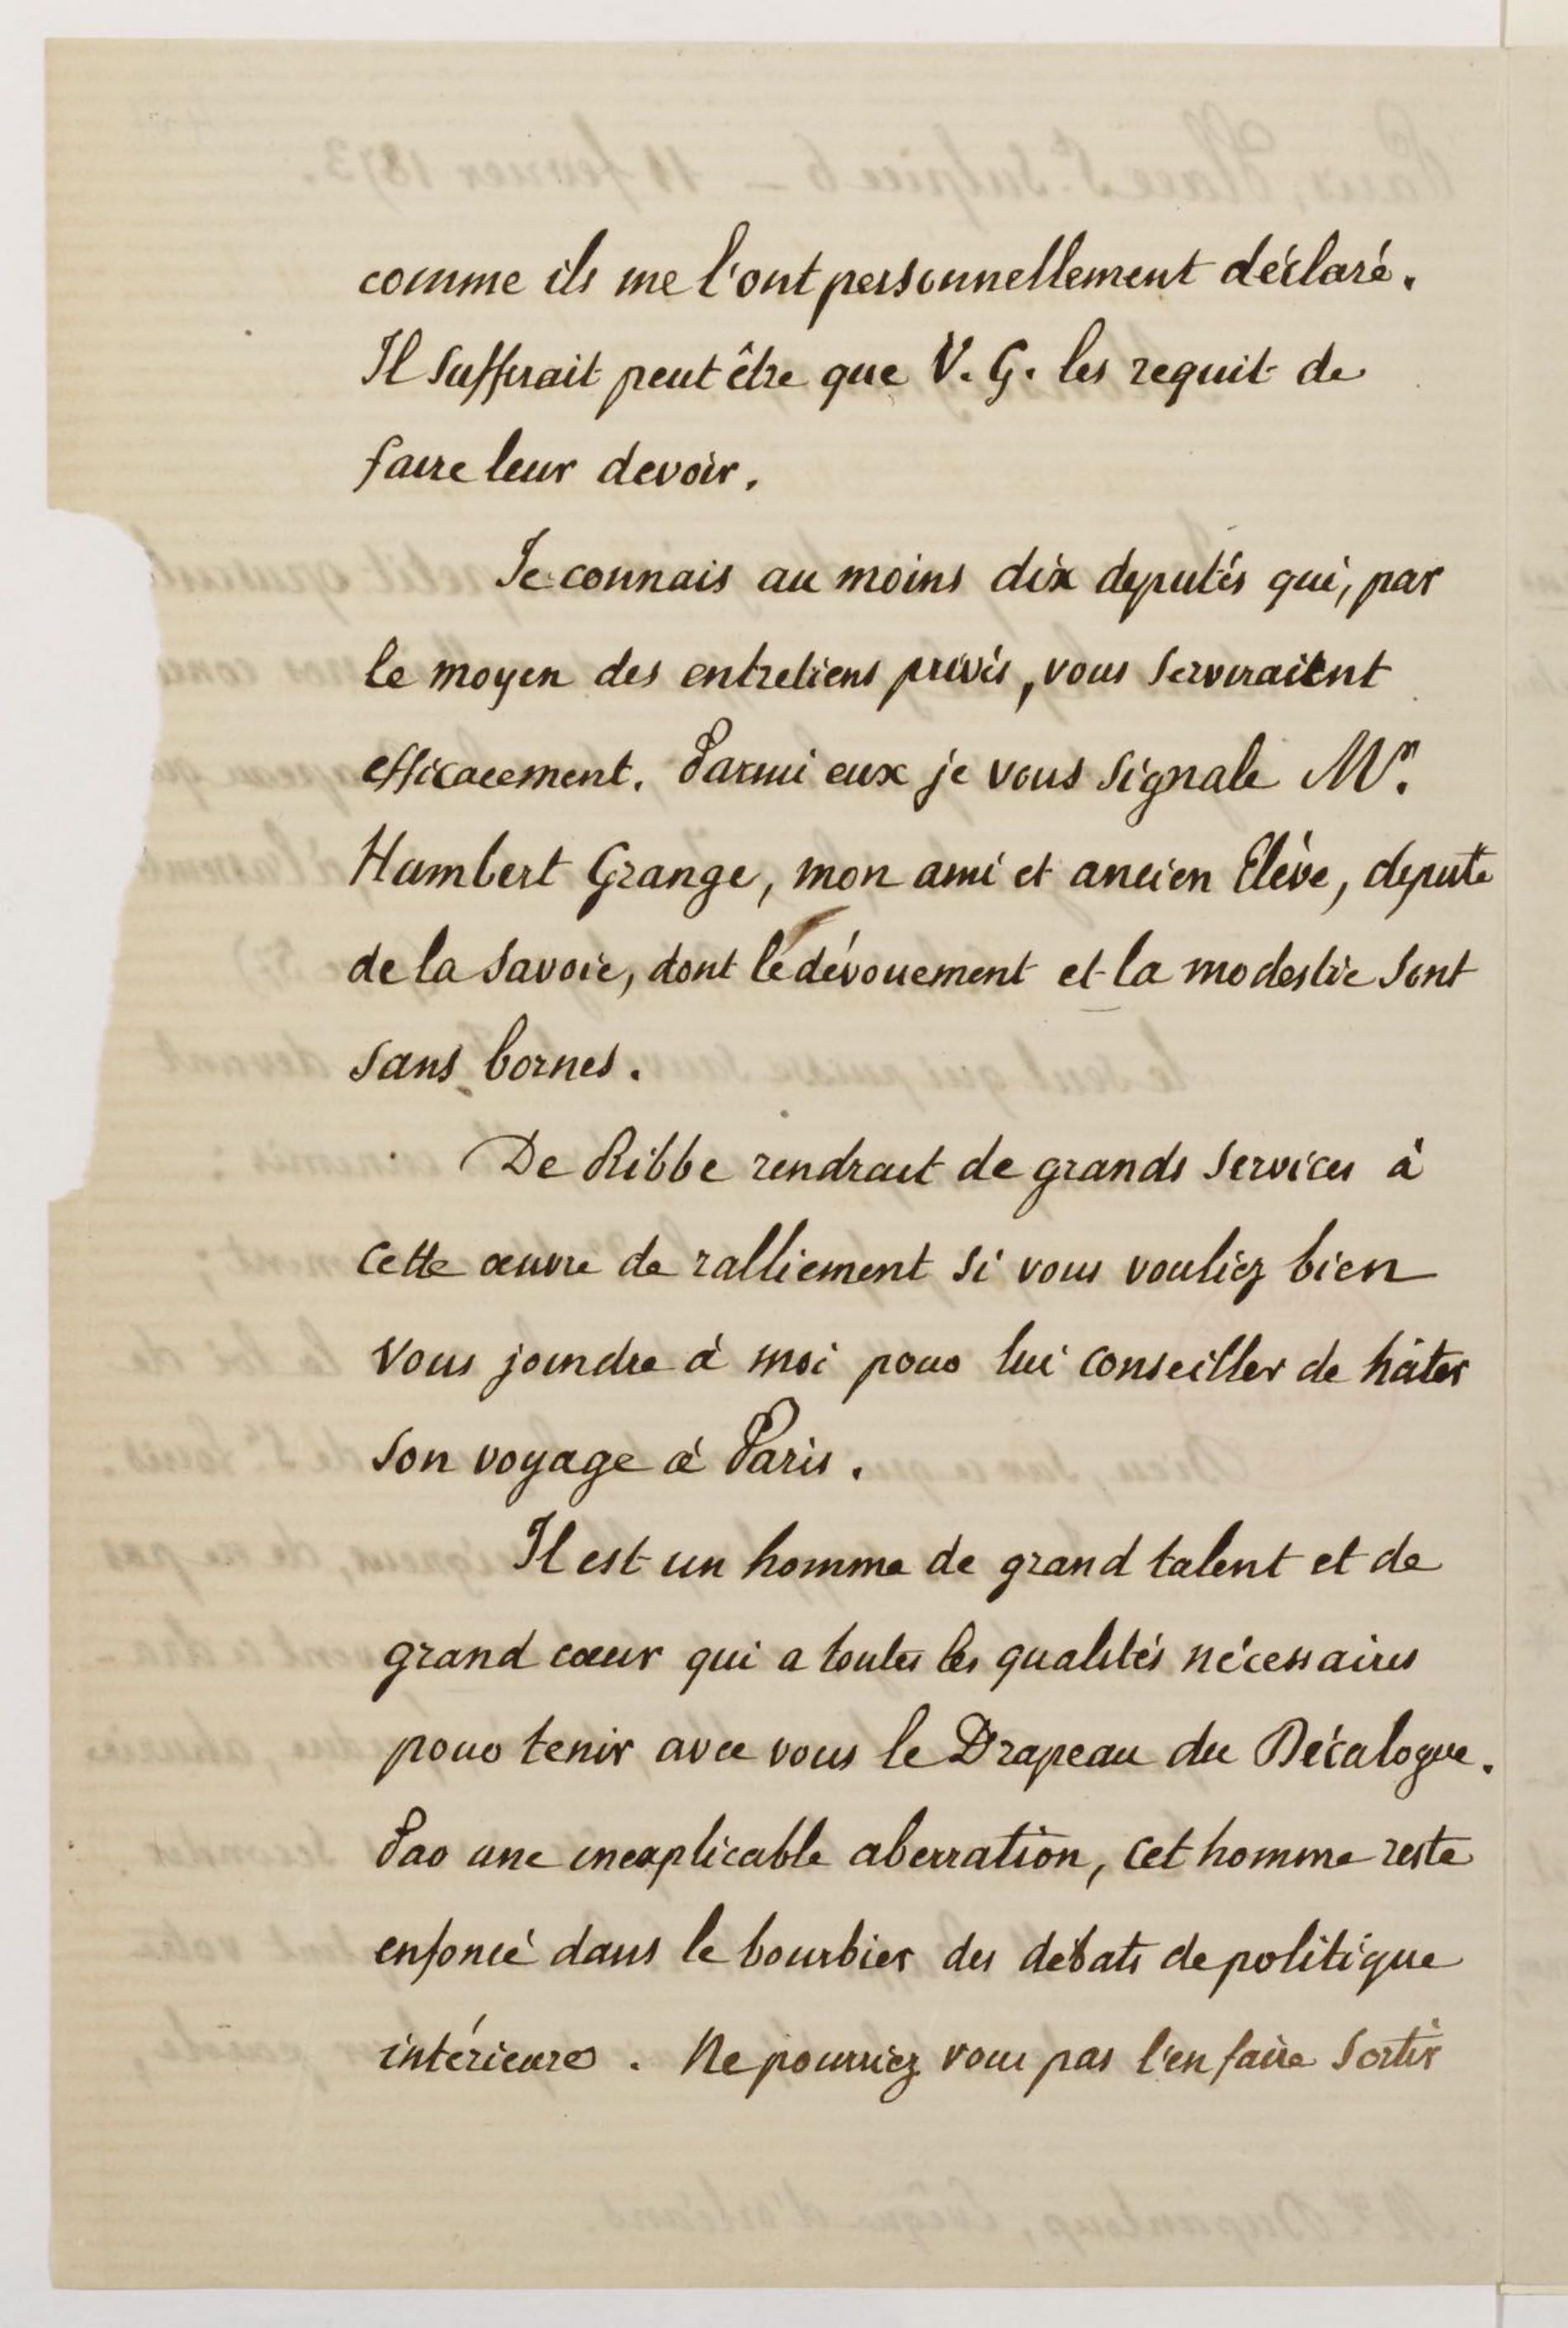 comme ils me l'ont personnellement déclaré.
Il suffirait peut être que V. G. les requit de
faire leur devoir.
Je connais au moins dix deputés qui, par
le moyen des entretiens privés, vous serviraient
efficacement. Parmi eux je vous signale Mr.
Humbert Grange, mon ami et ancien Elève, depute
de la Savoie, dont le dévouement et la modestie sont
sans bornes.
De Ribbe rendrait de grands services à
cette œuvre de ralliement si vous vouliez bien
vous joindre à moi pour lui conseiller de hâter
son voyage à Paris.
Il est un homme de grand talent et de
grand cœur qui a toutes les qualités nécessaires
pour tenir avec vous le Drapeau du Décalogue.
Par une inexplicable aberration, cet homme reste
enfoncé dans le bourbier des debats de politique
intérieure. Ne pourriez vous pas l'en faire sortir